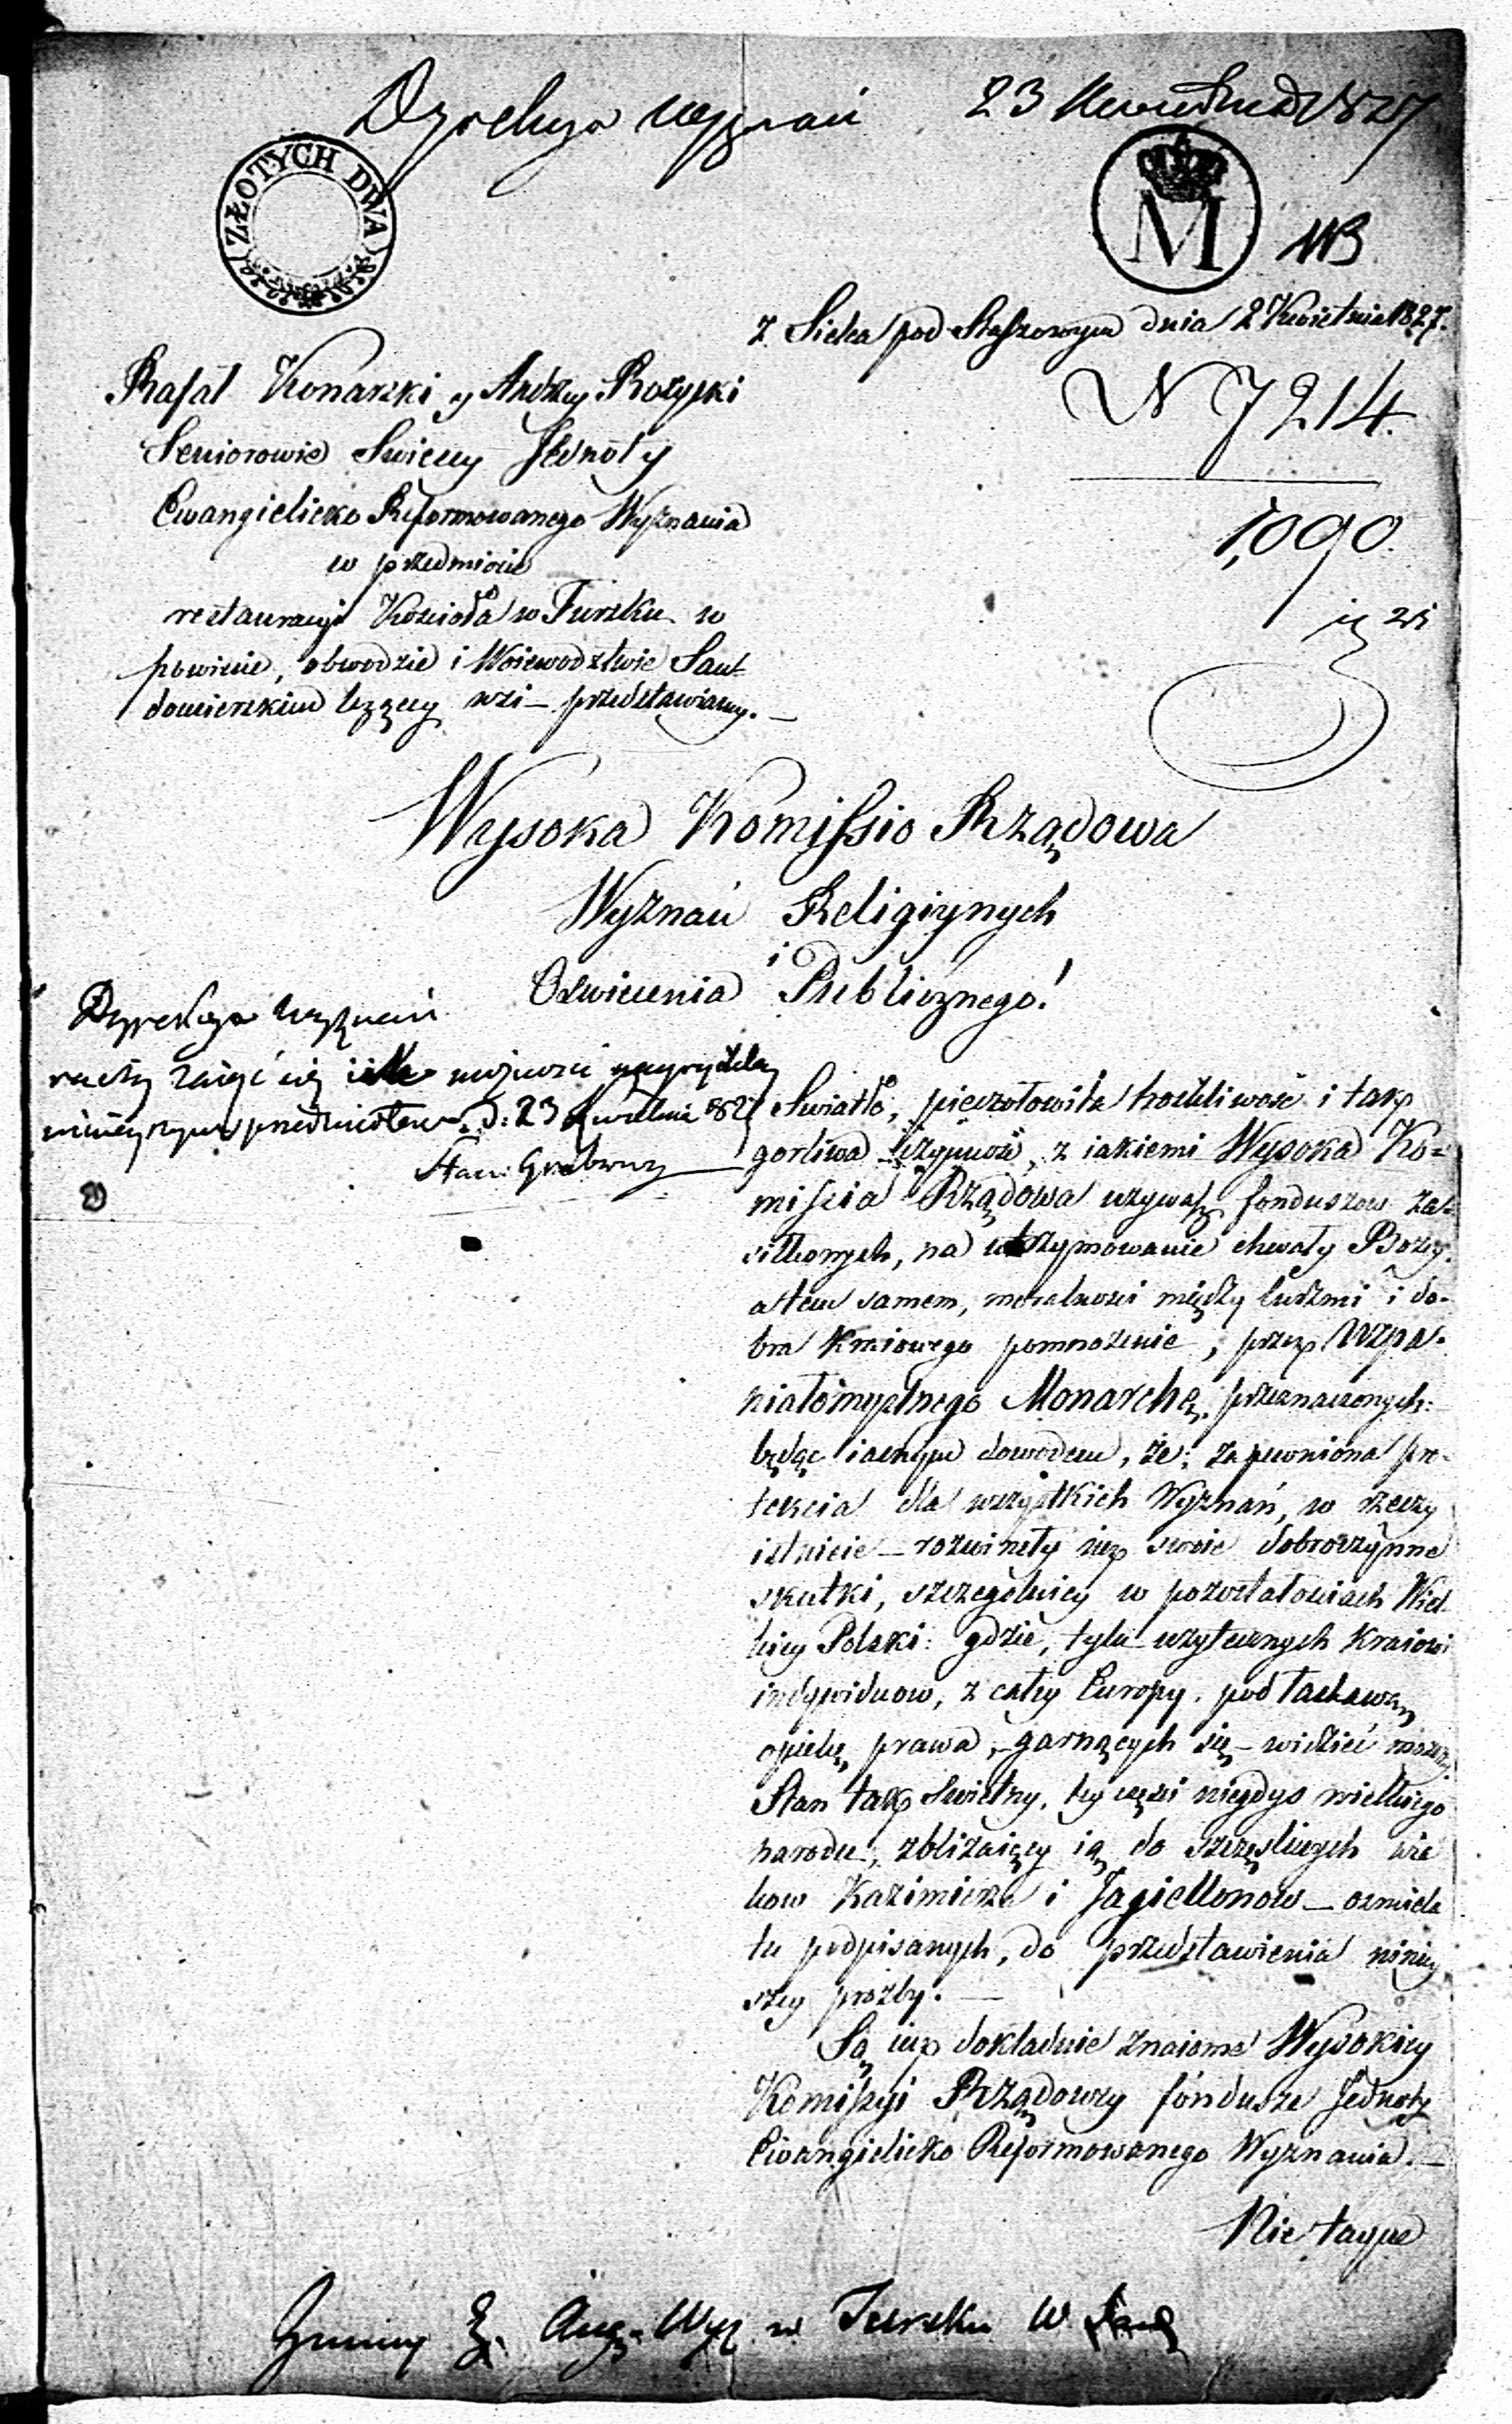 Dyrekcya wyznań 23 Kwietnia 1827
ZŁOTYCH DWA
M
113
z Sielca pod Staszowem dnia 2 Kwietnia 1827.
N 7214.
1,090.
Rafał Konarski y Andrzey Rożycki
Seniorowie Swieccy Jednoty
Ewangielicko Reformowanego Wyznania
w przedmiocie
restauracyi Kościoła w Tursku w
powiecie, obwodzie i Woiewodztwie San-
domierskim leżącey wsi – przedstawiamy. –
Wysoka Komissio Rządowa
Wyznań Religiynych
i
Oswiecenia Publicznego!
Dyrekcya Wyznań
raczy zaiąć się ile możności
ninieyszym przedmiotem. d: 23 Kwietnia 1827
Stan: Grabowsky
Swiatło, pieczołowita troskliwość i tak
gorliwa czynność, z iakiemi Wysoka Ko=
missia Rządowa używasz fonduszow za=
siłkowych, na utrzymowanie chwały Bożey.
a tem samem, moralności między ludzmi i do-
bra Kraiowego pomnożenie, przez Wspa-
niałomyslnego Monarchę, przeznaczonych:
będąc iasnym dowodem, że; zapewniona pro-
tekcia dla wszystkich Wyznań, w rzeczy
istnieie – rozwinęły iuż swoie dobroczynne
skutki, szczegolniey w pozostałościach Wiel-
kiey Polski: gdzie, tylu użytecznych Kraiowi
indywiduow, z całey Europy. pod łaskawą
opiekę prawa, – garnących się – widzieć możem.
Stan tak swietny, tey części niegdys wielkiego
narodu, zbliżaiący ią do szczęsliwych wie
kow Kazimierza i Jagiellonow – osmiela
tu podpisanych, do przedstawienia niniey
szey prozby. –
Są iuż dokładnie znaiome Wysokiey
Komissyi Rządowey fondusze Jednoty
Ewangielicko Reformowanego Wyznania. –
Nie tayne
Gminy E. Aug. Wyz. w Tursku W